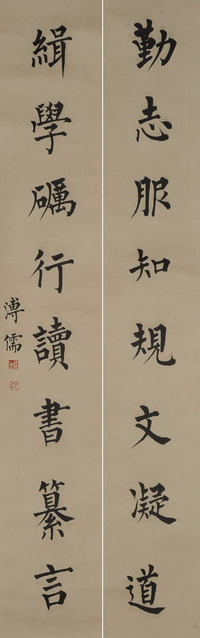 勤志服知規文凝道
緝學礪行讀書纂言
溥儒